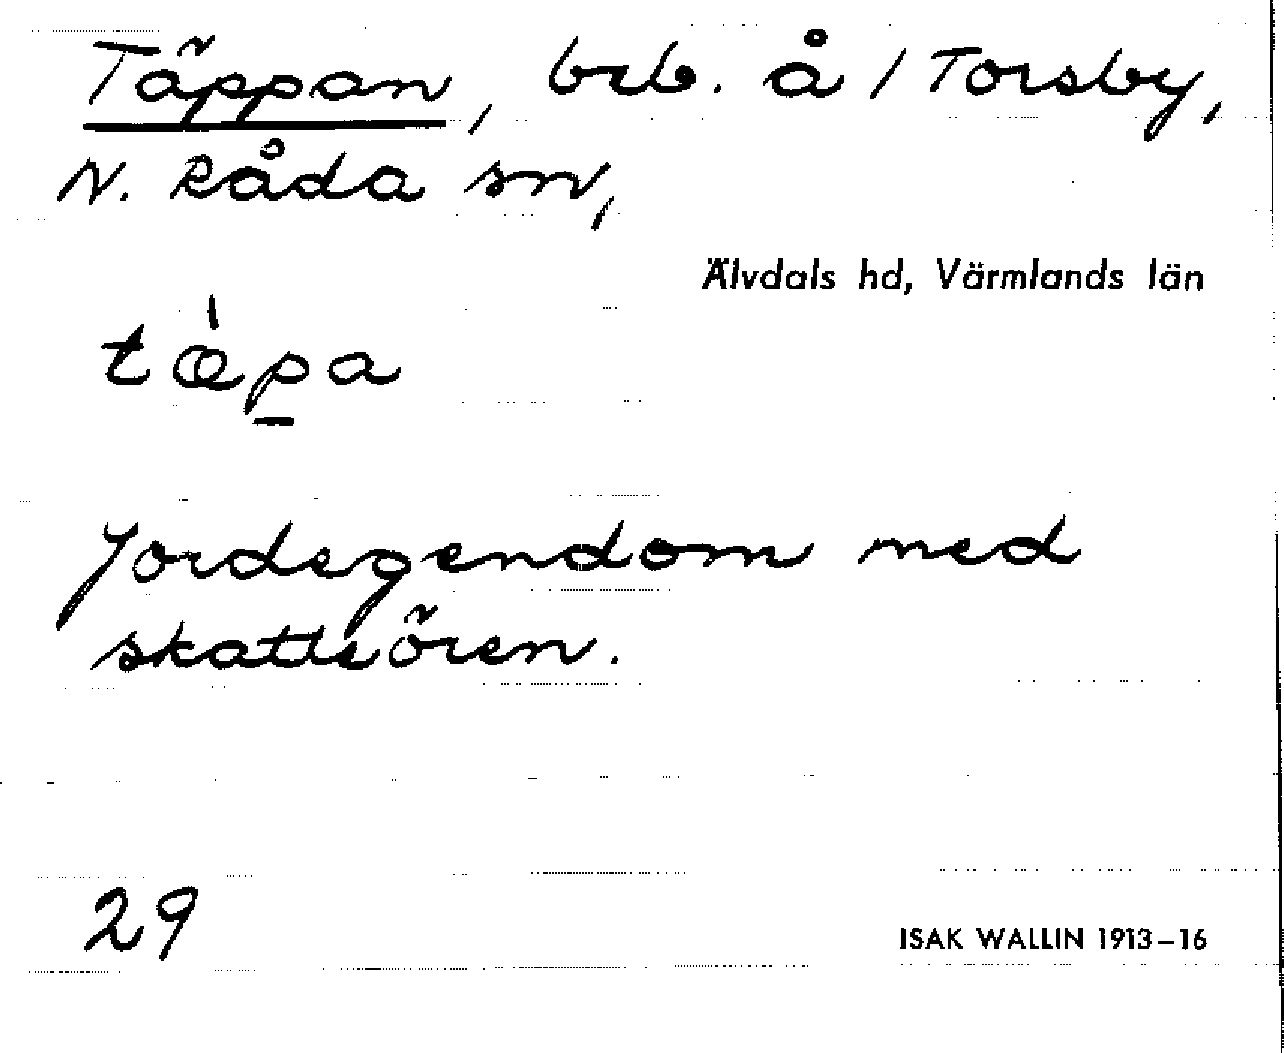 Täppan, beb. å 1 Torsby,
N. Råda sn,
Älvdals hd, Värmlands län
tæ̀p̲a
Jordegendom med
skatteören.
29
ISAK WALLIN 1913–16